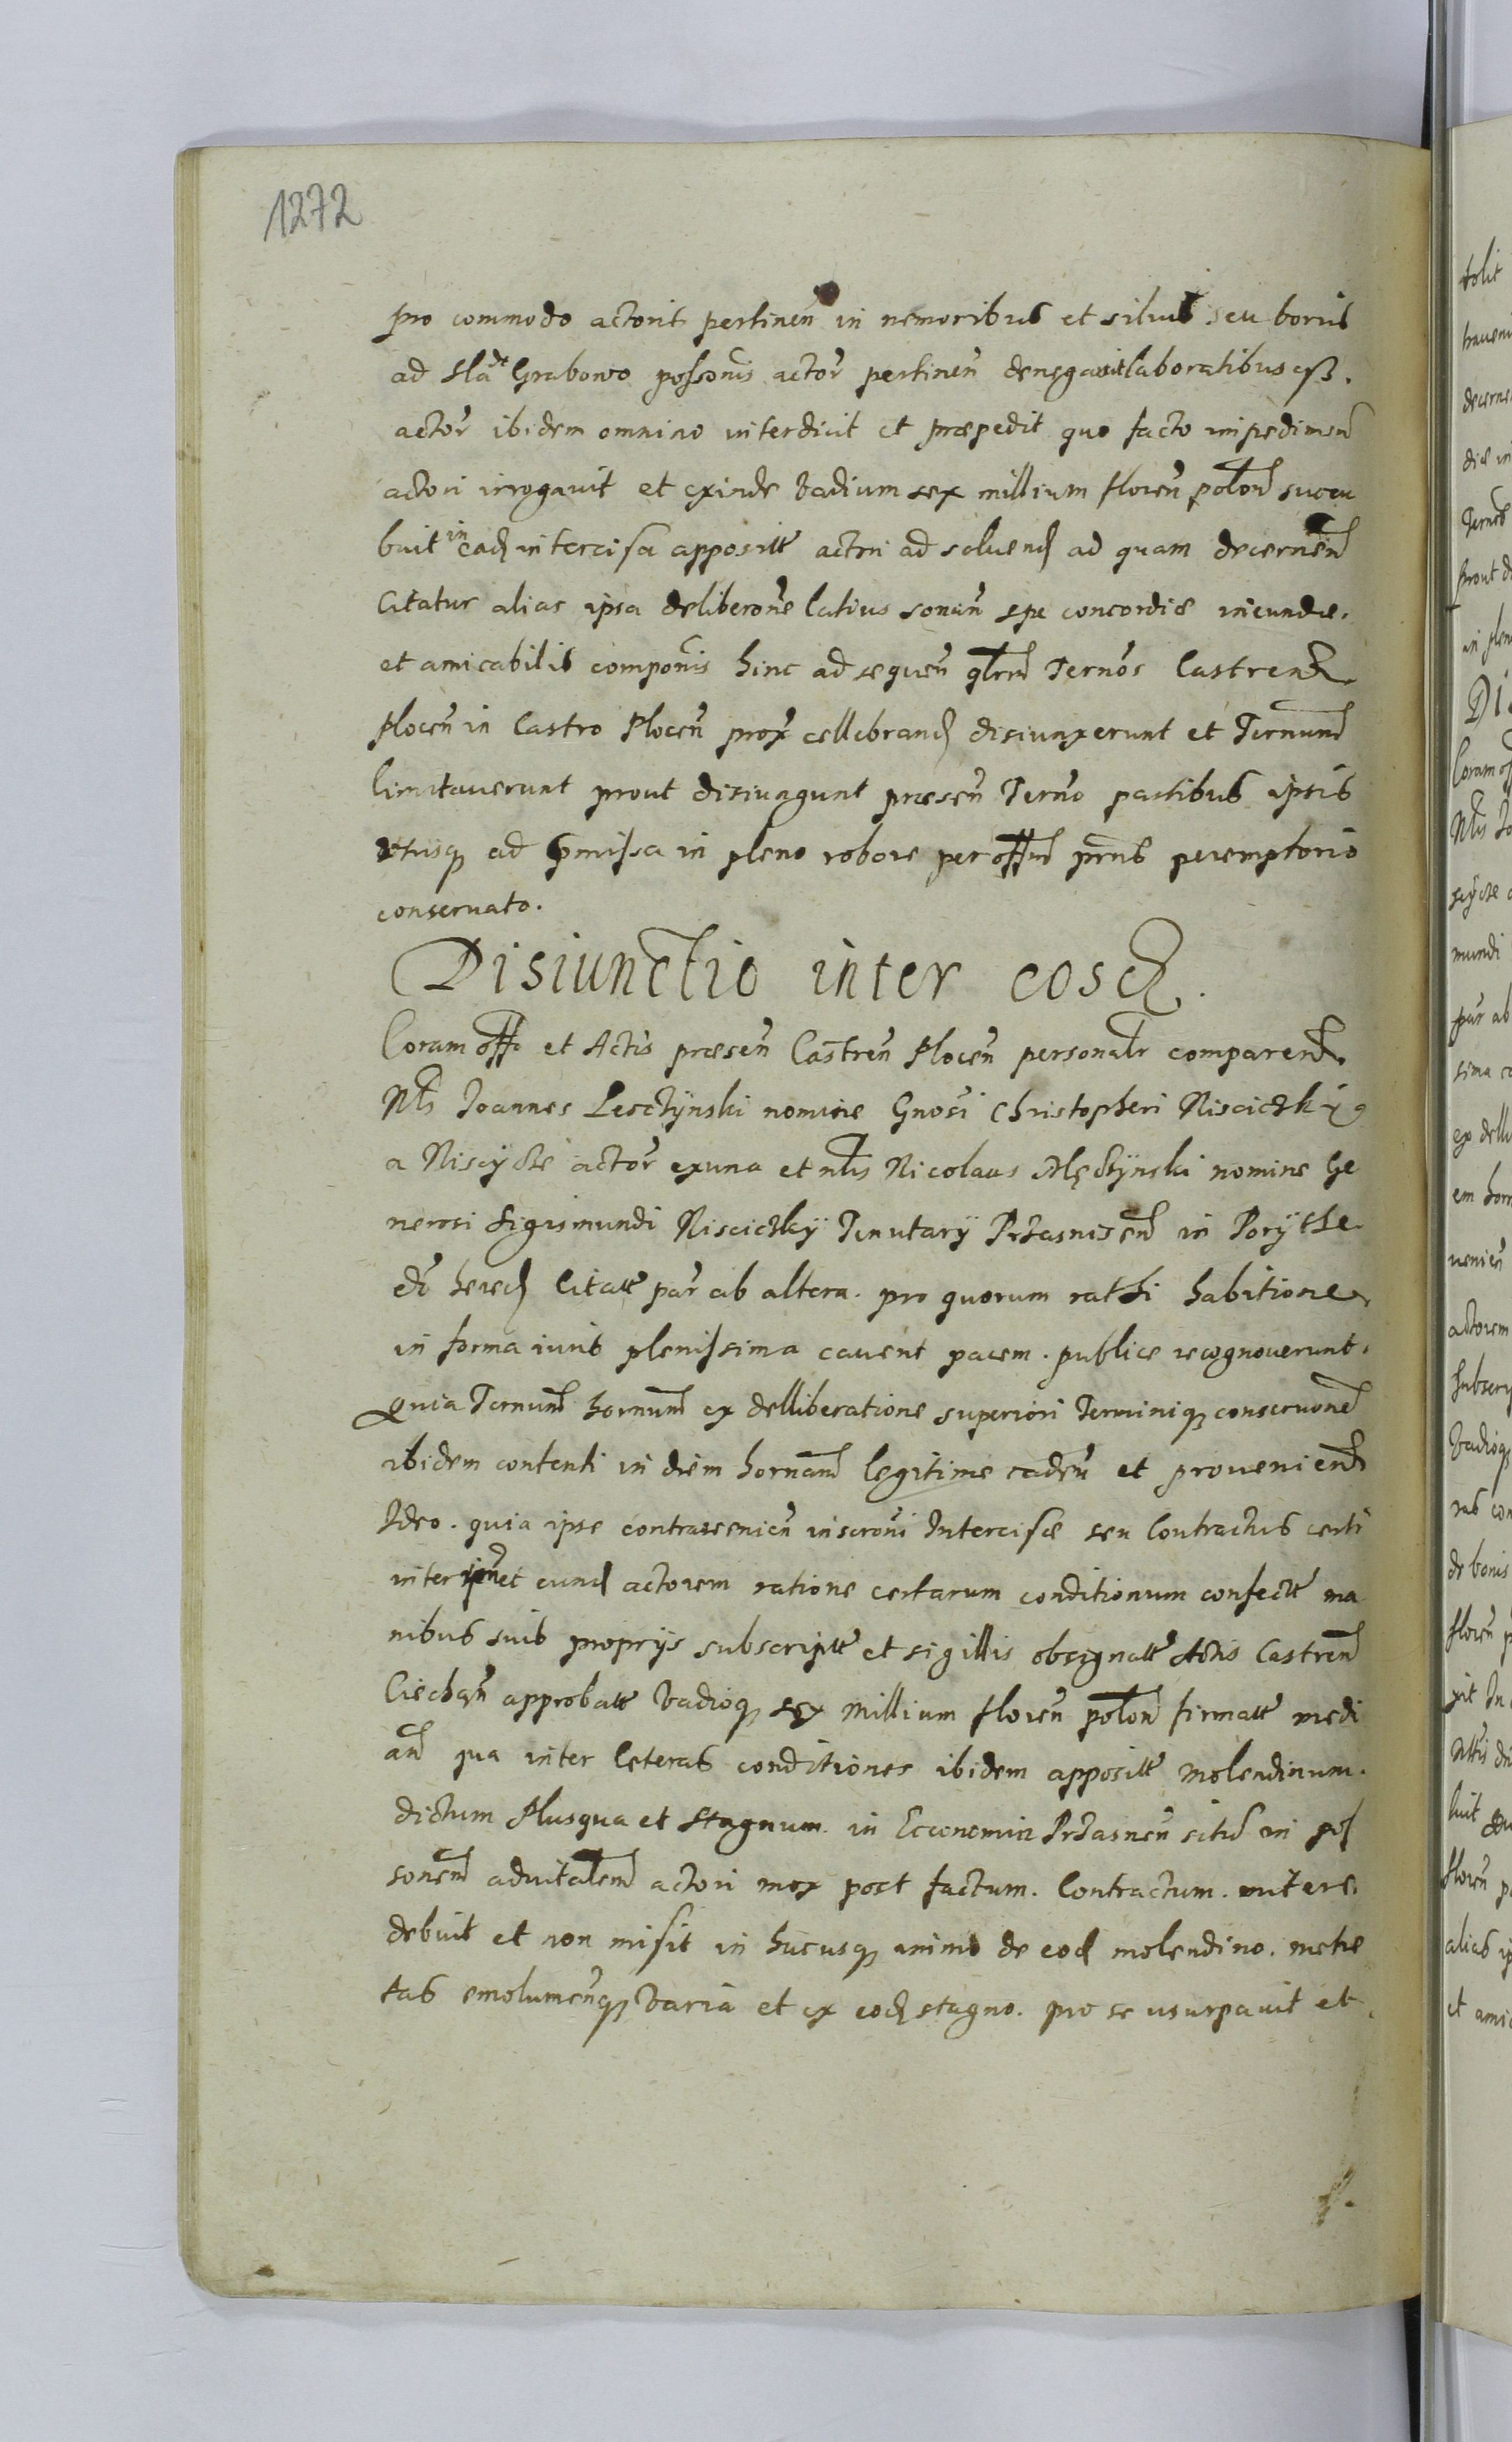 1272
pro commodo actoris pertinen in nemoribus et siluis seu boris
ad Grabowo possonis actor pertinen denegauit laboratibus
actor ibidem omnino interdicit et præpedit quo facto impedimen
actori irrogauit et exinde Vadium sex millium floren polon succu
buit in ead intercisa apposit actori ad soluend ad quam decernen
Citatur alias ipsa deliberone latius sonan spe concordiæ ineundæ.
et amicabilis componis hinc ad sequen Ternos Castren
Plocen in Castro Plocen prox cellebrand disiunxerunt et Ternum
limitauerunt prout disiungunt præsen Terno partibus ipsis
vtrisq ad pmissa in pleno robore per offm prns peremptorio
conseruato.
Disiunctio inter eosd.
Coram offo et Actis præsen Castren Plocen personalr comparen
Nlis Joannes Lesczÿnski nomine Gnosi Christopheri Nisciczkÿ
a Nisczÿcze actor ex una et nlis Nicolaus Męczÿnski nomine Ge
nerosi Sigismundi Nisciczkÿ Tenutarÿ Przasnisen in Porÿthe
hered Citat par ab altera. pro quorum rathi habitione
in forma iuris plenissima cauent pacem. publice recognouerunt.
Quia Ternum hornum ex delliberatione superiori Terminiq conseruone
ibidem contenti in diem hornam legitime caden et prouenien
Ideo. quia ipse contrauenien inscroni Intercisæ seu Contractus certi
inter et eund actorem ratione certarum conditionum confect ma
nibus suis proprijs subscript et sigillis obsignat Actis Castren
Ciechan approbat Vadioq sex Millium floren polon firmat medi
an qua inter Ceteras conditiones ibidem apposit Molendinum.
dictum Plusqua et Stagnum. in Economia Przasnen situ in pos
sonem aduitalem actori mox post factum. Contractum. mitere
debuit et non misit in hucusq imimo de eod molendino. metre
tas emolumenq Varia et ex eod stagno. pro se usurpauit et